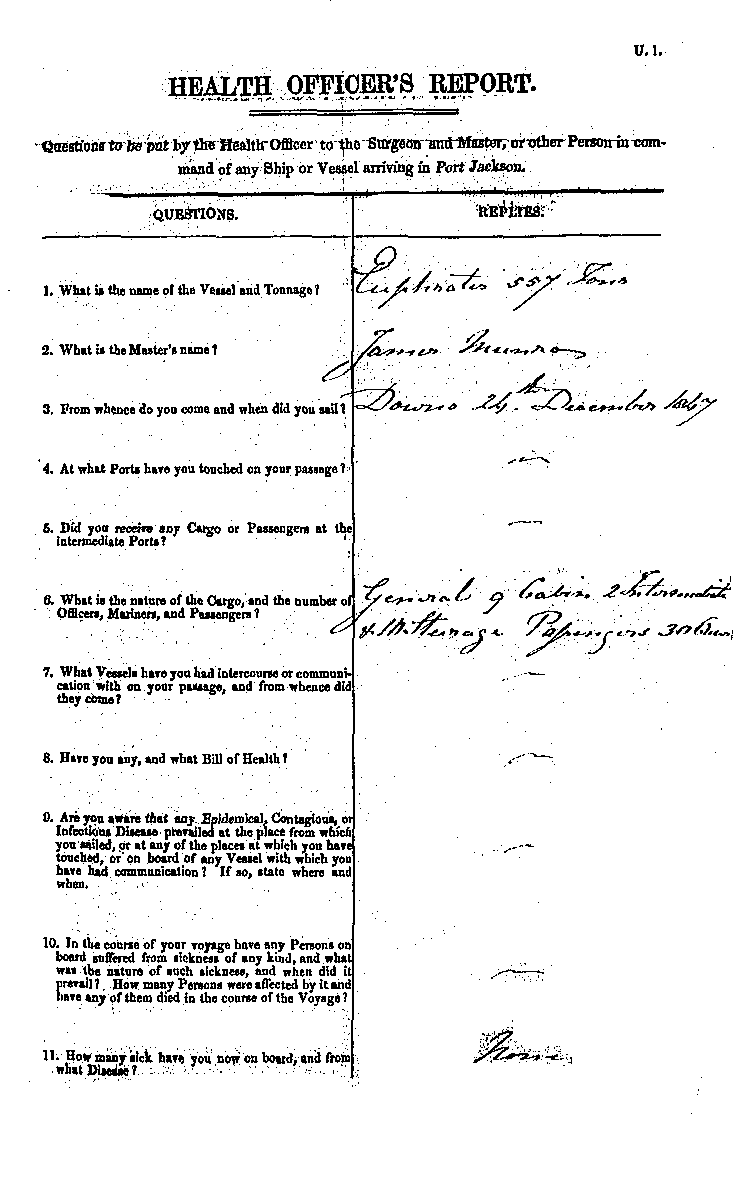 U. 1.
HEALTH OFFICER'S REPORT.
Questions to be put by the Health Officer to the Surgeon and Master, or other Person in com-
mand of any Ship or Vessel arriving in Port Jackson.
QUESTIONS.
REPLIES.
1. What is the name of the Vessel and Tonnage?
Euphrates 557 Tons
2. What is the Master's name?
James Munro
3. From whence do you come and when did you sail?
Downs 24th December 1847
4. At what Ports have you touched on your passage?
—
5. Did you receive any Cargo or Passengers at the
intermediate Ports?
—
6. What is the nature of the Cargo, and the number of
Officers, Mariners, and Passengers?
General 9 Cabin 2 Intermediate
& Steerage Passengers 30 Crew
7. What Vessels have you had intercourse or communi-
cation with on your passage, and from whence did
they come?
—
8. Have you any, and what Bill of Health?
—
9. Are you aware that any Epidemical, Contagious, or
Infectious Disease prevailed at the place from which
you sailed, or at any of the places at which you have
touched, or on board of any Vessel with which you
have had communication? If so, state where and
when.
—
10. In the course of your voyage have any Persons on
board suffered from sickness of any kind, and what
was the nature of such sickness, and when did it
prevail? How many Persons were affected by it and
have any of them died in the course of the Voyage?
—
11. How many sick have you now on board, and from
what Disease?
None